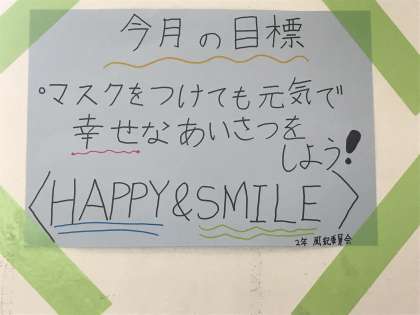 今月の目標
°マスクをつけても元気で
幸せなあいさつを
しよう!
〈HAPPY&SMILE〉
2年 風紀委員会